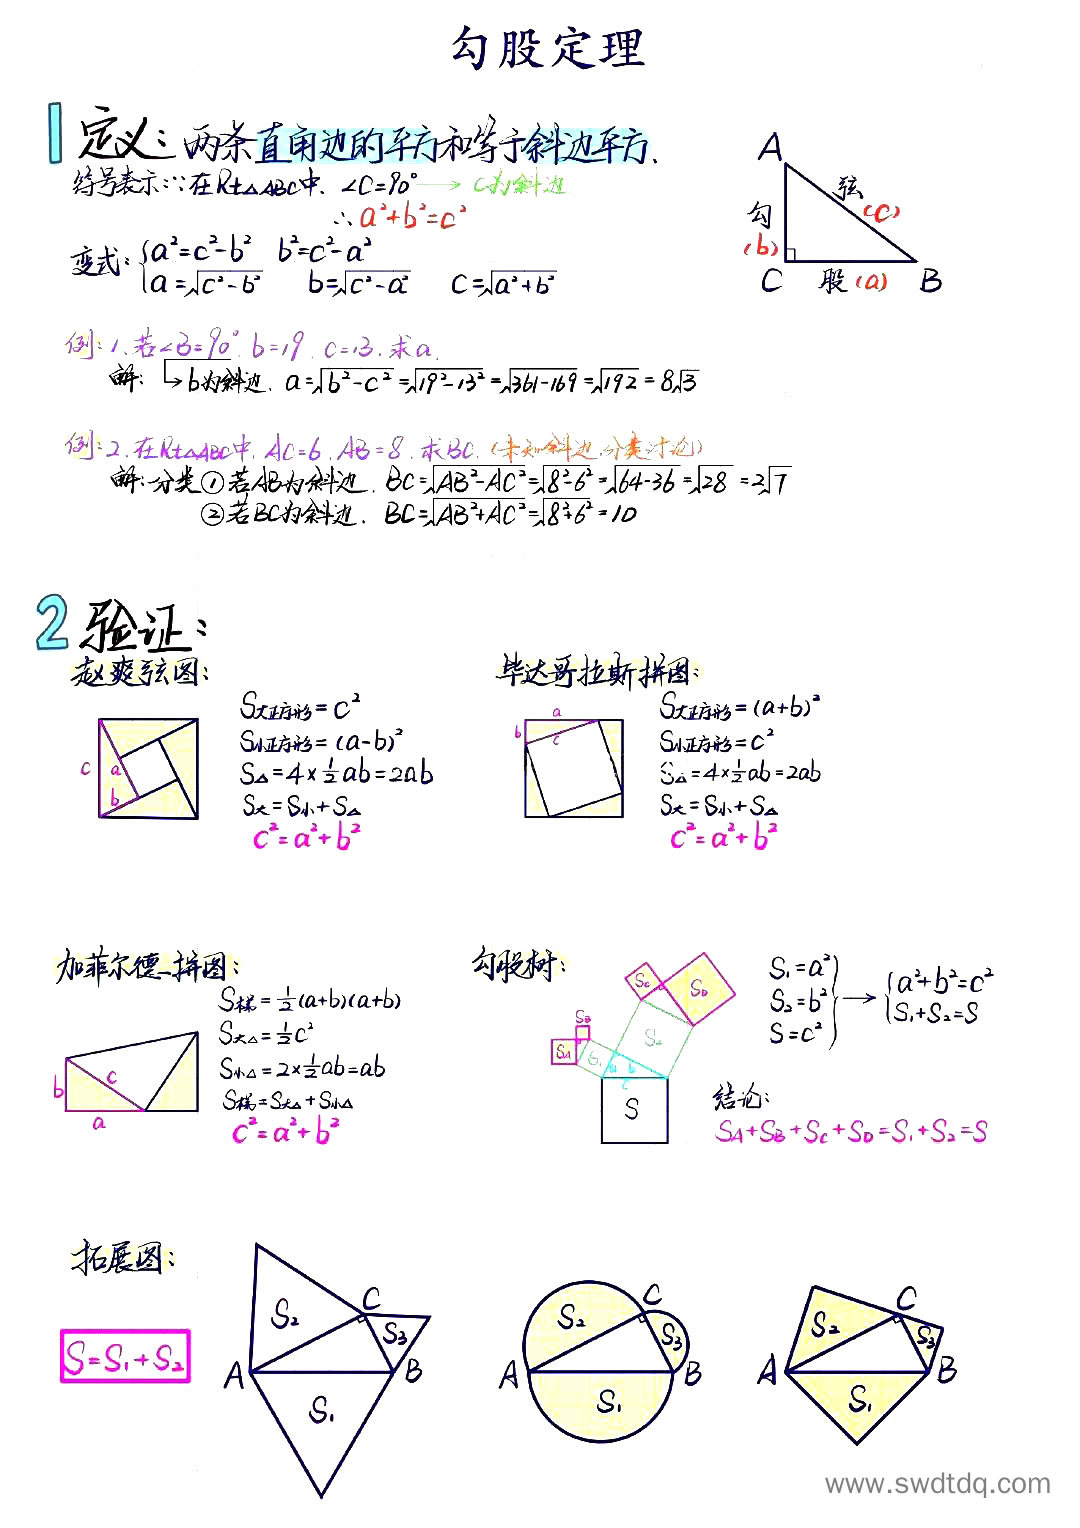 勾股定理
1 定义：两条直角边的平方和等于斜边平方.
符号表示：∵在Rt△ABC中，∠C=90° → C为斜边
∴a²+b²=c²
变式：{a²=c²-b² b²=c²-a²
a=√(c²-b²) b=√(c²-a²) C=√(a²+b²)
A
弦
(c)
勾
(b)
C 股(a) B
例：1、若∠B=90°，b=19，c=13，求a.
解：↳b为斜边，a=√(b²-c²)=√(19²-13²)=√(361-169)=√192=8√3
例：2、在Rt△ABC中，AC=6，AB=8，求BC.(未知斜边，分类讨论)
解：分类①若AB为斜边，BC=√(AB²-AC²)=√(8²-6²)=√(64-36)=√28=2√7
②若BC为斜边，BC=√(AB²+AC²)=√(8²+6²)=10
2 验证：
赵爽弦图：
S大正方形=c²
S小正方形=(a-b)²
S△=4×½ab=2ab
S大=S小+S△
c²=a²+b²
c a
b
毕达哥拉斯拼图：
S大正方形=(a+b)²
S小正方形=c²
S△=4×½ab=2ab
S大=S小+S△
c²=a²+b²
a
b c
加菲尔德拼图：
S梯=½(a+b)(a+b)
S大△=½c²
S小△=2×½ab=ab
S梯=S大△+S小△
c²=a²+b²
b c
a
勾股树：
SC SD
SB
SA S₁ S₂
a b
c
S
S₁=a²
S₂=b²
S=c²
→ {a²+b²=c²
S₁+S₂=S
结论：
SA+SB+SC+SD=S₁+S₂=S
拓展图：
S=S₁+S₂
S₂ C S₃
A B
S₁
S₂ C S₃
A B
S₁
S₂ C S₃
A B
S₁
www.swdtdq.com